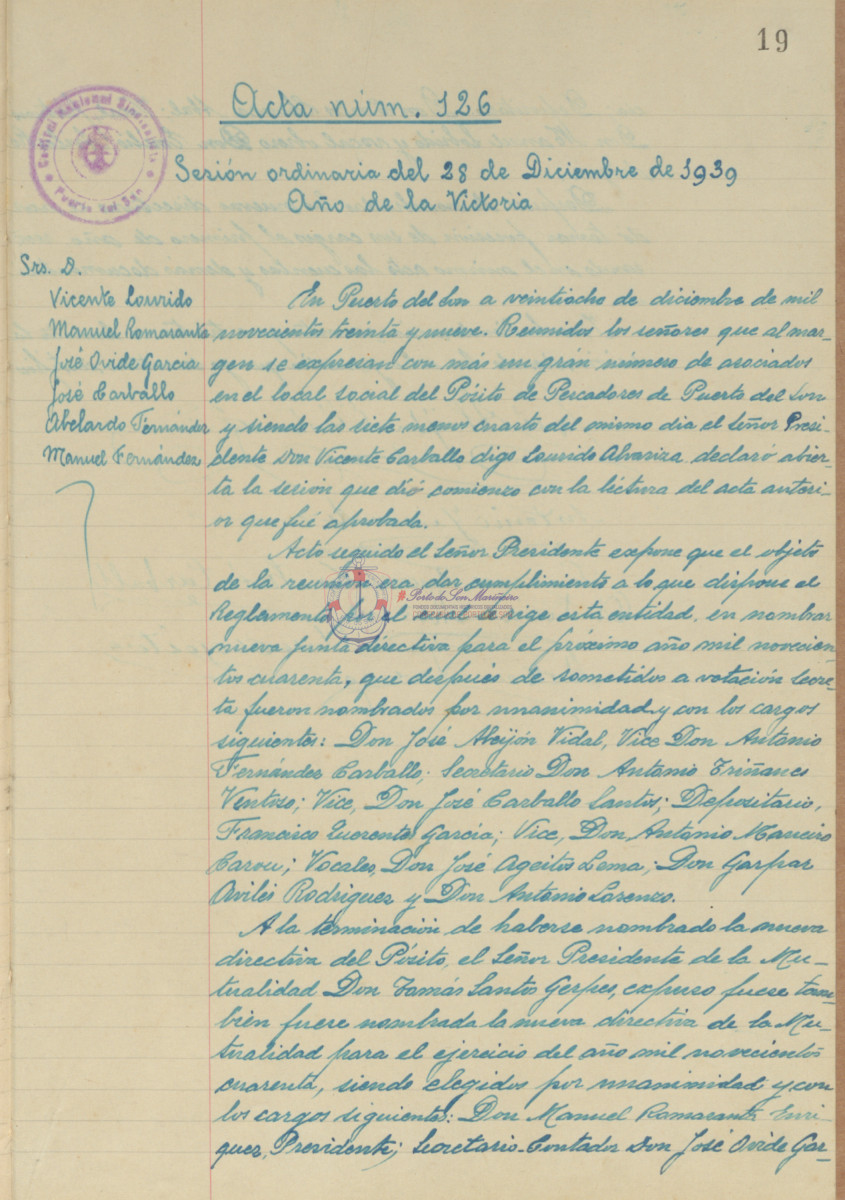 19
Acta núm. 126
Sesión ordinaria del 28 de Diciembre de 1939
Año de la Victoria
Srs. D.
Vicente Lourido
Manuel Romarante
José Ovide Garcia
José Carballo
Abelardo Fernández
Manuel Fernández
En Puerto del Son a veintiocho de diciembre de mil
novecientos treinta y nueve. Reunidos los señores que al mar-
gen se expresan con más un grán número de asociados
en el local social del Pósito de Pescadores de Puerto del Son
y siendo las siete menos cuarto del mismo dia el Señor Presi-
dente Don Vicente Carballo digo Lourido Alvariza declaró abier-
ta la sesión que dió comienzo con la lectura del acta anteri-
or que fué aprobada.
Acto seguido el Señor Presidente expone que el objeto
de la reunión era dar cumplimiento a lo que dispone el
Reglamento por el cual se rige esta entidad, en nombrar
nueva Junta directiva para el próximo año mil novecien-
tos cuarenta, que después de sometidos a votación secre-
ta fueron nombrados por unanimidad y con los cargos
siguientes: Don José Abeijón Vidal, Vice Don Antonio
Fernández Carballo; Secretario Don Antonio Triñanes
Ventoso; Vice, Don José Carballo Santos; Depositario,
Francisco Querentes García; Vice, Don Antonio Maneiro
Carou; Vocales, Don José Ageitos Lema; Don Gaspar
Avilés Rodriguez y Don Antonio Lorenzo.
A la terminación de haberse nombrado la nueva
directiva del Pósito, el Señor Presidente de la Mu-
tualidad Don Tomás Santos Gerpes, expuso fuese tam-
bién fuere nombrada la nueva directiva de la Mu-
tualidad para el ejercicio del año mil novecientos
cuarenta, siendo elegidos por unanimidad y con
los cargos siguientes: Don Manuel Romarante Enri-
quez, Presidente; Secretario-Contador Don José Ovide Gar-
Puerto del Son
#PortodeSonMariñeiro